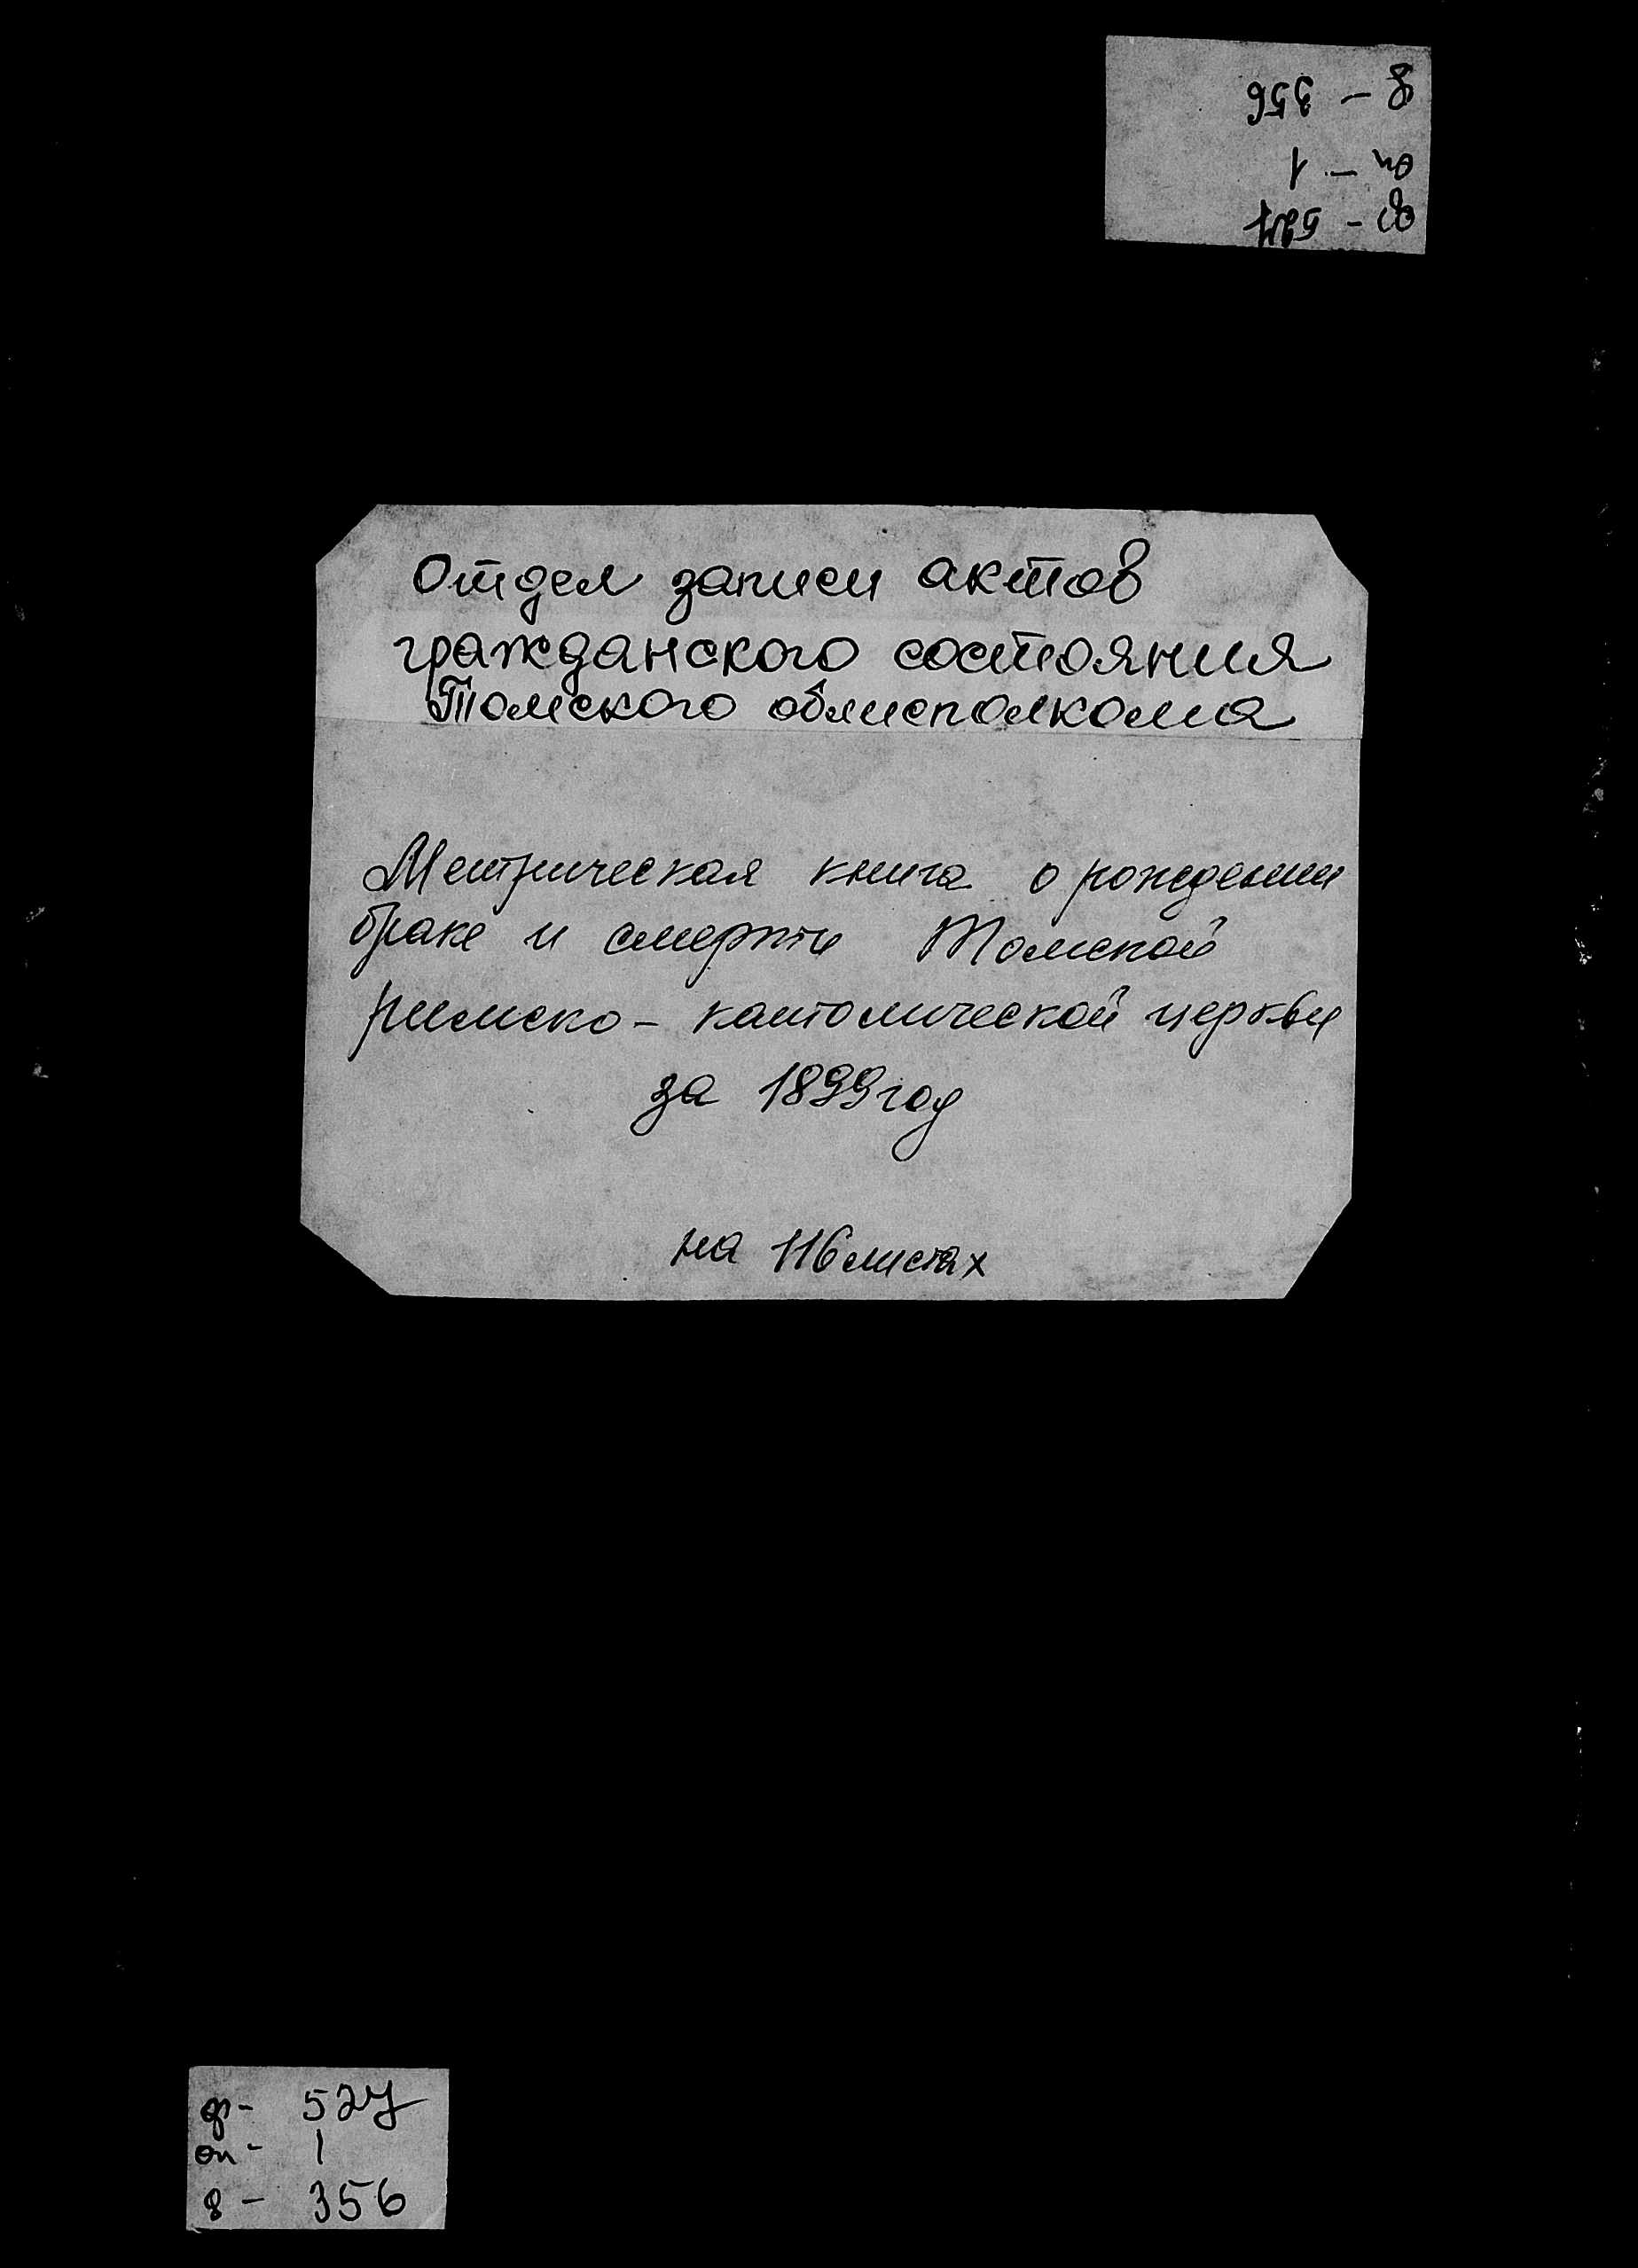 д - 356
оп - 1
ф - 527
Отдел записи актов
гражданского состояния
Томского облисполкома
Метрическая книга о рождении
браке и смерти Томской
римско - католической церкви
за 1899 год
на 116 листах
ф - 527
оп - 1
д - 356